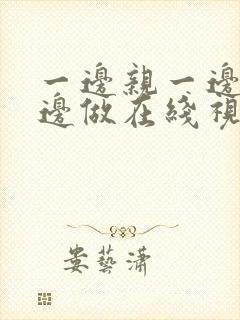 一邊親一邊
邊做在綫視
娄藝瀟